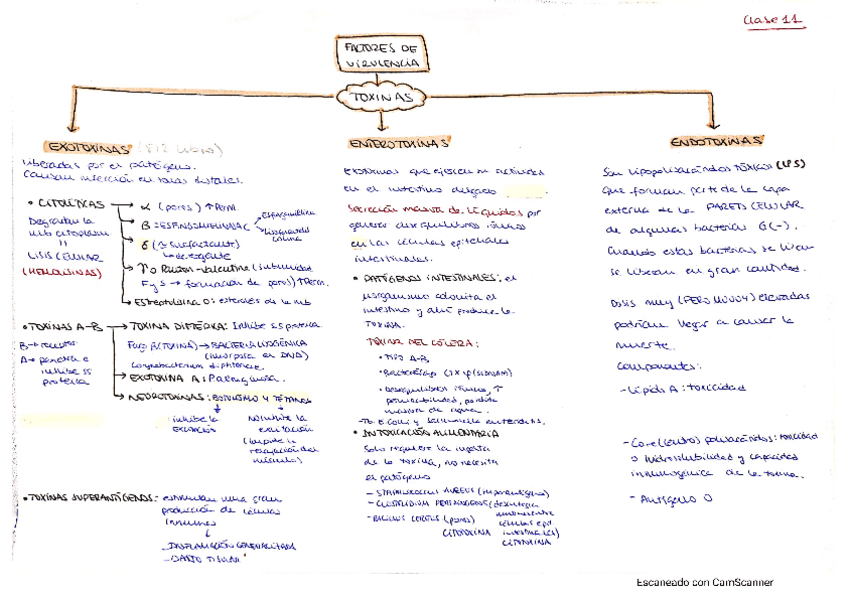 Clase 11
FACTORES DE
VIRULENCIA
TOXINAS
EXOTOXINAS
liberadas por el patógeno.
Causan infección en zonas distales.
• CITOLÍTICAS
Degradan la
mb citoplasm
=
LISIS CELULAR
(HEMOLISINAS)
α (poros) ↑ Perm.
β = ESFINGOMIELINASA C
Esfingomielina
(surfactante)
↳ detergente
γ o Panton-Valentine (subunidad
F y S → formación de poros) ↑ Perm.
Estreptolisina O: esteroles de la mb
• TOXINAS A-B
B → receptor
A → penetra e
inhibe SS
proteica
TOXINA DIFTÉRICA: Inhibe SS proteica
Fago β (TOXINA) → BACTERIA LISOGÉNICA
(incorpora en DNA)
Corynebacterium diphtheriae.
EXOTOXINA A: P. aeruginosa.
NEUROTOXINAS: BOTULISMO Y TÉTANOS
inhibe la
excitación
No inhibe la
excitación
(impide la
relajación del
músculo)
• TOXINAS SUPERANTÍGENOS: estimulan una gran
producción de células
inmunes
- INFLAMACIÓN GENERALIZADA
- DAÑO TISULAR
ENTEROTOXINAS
Exotoxinas que ejercen su actividad
en el intestino delgado
Secreción masiva de líquidos por
generar desequilibrios iónicos
en las células epiteliales
intestinales.
• PATÓGENOS INTESTINALES: el
microorganismo coloniza el
intestino y allí produce la
TOXINA.
TOXINA DEL CÓLERA:
• TIPO A-B
• Bacteriófago
• Desequilibrio iónico, ↑
permeabilidad, pérdida
masiva de agua.
- Tb E. coli y Salmonella enteritidis.
• INTOXICACIÓN ALIMENTARIA
Solo requiere la ingesta
de la toxina, no necesita
el patógeno
- STAPHYLOCOCCUS AUREUS (superantígeno)
- CLOSTRIDIUM PERFRINGENS
células epit
intestinales)
CITOTOXINA
- BACILLUS CEREUS (poros)
CITOTOXINA
ENDOTOXINAS
Son lipopolisacáridos TÓXICOS (LPS)
que forman parte de la capa
externa de la PARED CELULAR
de algunas bacterias G(-).
Cuando estas bacterias se lisan
se liberan en gran cantidad.
Dosis muy (PERO MUUUY) elevadas
podrían llegar a causar la
muerte.
Componentes:
- Lípido A: toxicidad
- Core (centro) polisacárido: toxicidad
o hidrosolubilidad y capacidad
inmunogénica de la toxina.
- Antígeno O
Escaneado con CamScanner